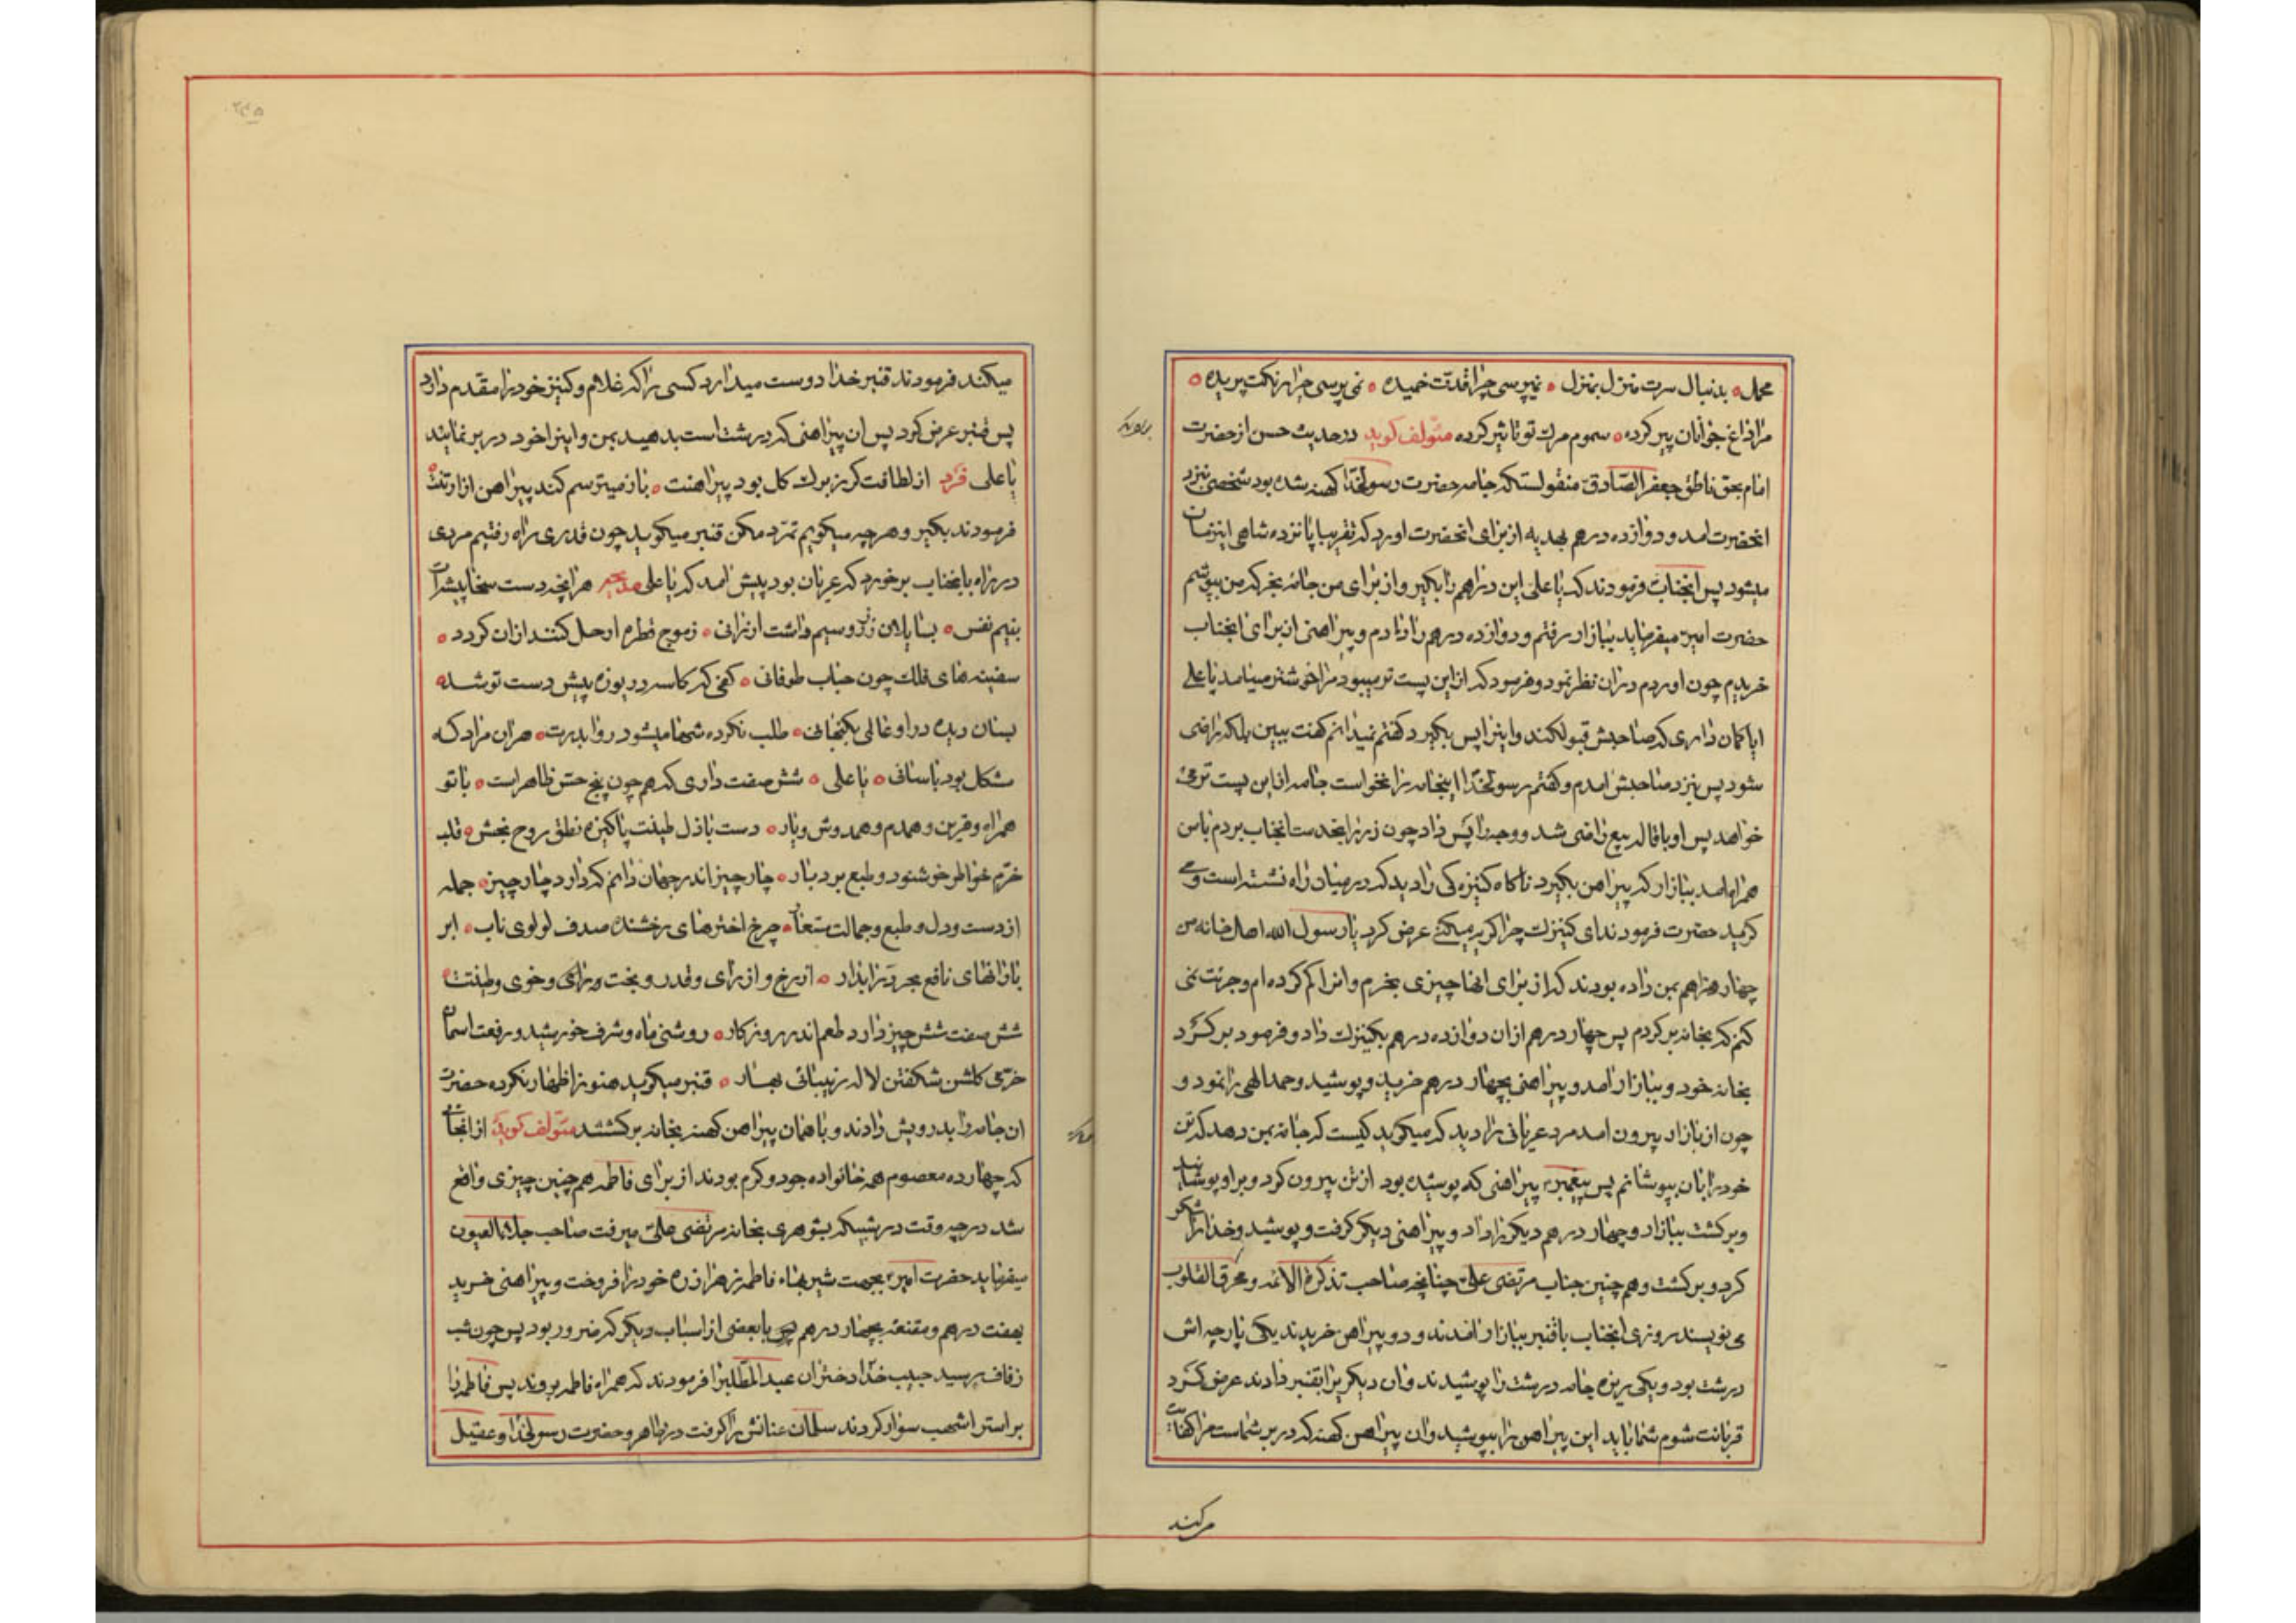 محمل بدنبال سرت منزل بمنزل نمیپرسی چرا قدت خمیده نمی‌پرسی چرا رنگت پریده
مرا داغ جوانان پیر کرده سموم مرک تو تاثیر کرده مؤلف کوید در حدیث حسن از حضرت
امام بحق ناطق جعفر الصادق منقولستکه جامه حضرت رسولخدا کهنه شده بود شخصی بنزد
انحضرت امد و دوازده درهم بهدیه از برای انحضرت اورد که تقریبا پانزده شاهی اینزمان
میشود پس انجناب فرمودند که یا علی این دراهم را بکیر و از برای من جامه بخر که من بپوشم
حضرت امیر میفرماید ببازار رفتم و دوازده درهم را دادم و پیراهنی از برای انجناب
خریدم چون اوردم دران نظر نمود و فرمود که از این پست تر میبود مرا خوشتر میامد یا علی
ایا کمان داری که صاحبش قبولکند و اینرا پس بکیرد کفتم نمیدانم کفت ببین بلکه راضی
شود پس بنزد صاحبش امدم و کفتم رسولخدا اینجامه را نخواست جامه از این پست تر می
خواهد پس او باقاله بیع راضی شد و وجه را پس داد چون زر را بخدمت انجناب بردم با من
همراه امد ببازار که پیراهن بکیرد ناکاه کنیزکی را دید که در میان راه نشسته است و می
کرید حضرت فرمودند ای کنیزک چرا کریه میکنی عرض کرد یا رسول الله اهل خانه من
چهار درهم بمن داده بودند که از برای انها چیزی بخرم و انرا کم کرده‌ام و جرئت نمی
کنم که بخانه برکردم پس چهار درهم از ان دوازده درهم بکنیزک داد و فرمود برکرد
بخانه خود و ببازار امد و پیراهنی بچهار درهم خرید و پوشید و حمد الهی را نمود و
چون از بازار بیرون امد مرد عریانی را دید که میکوید کیست که جامه بمن دهد که تن
خود را بان بپوشانم پس پیغمبر پیراهنی که پوشیده بود از تن بیرون کرد و بر او پوشانید
و برکشت ببازار و چهار درهم دیکر را داد و پیراهنی دیکر کرفت و پوشید و خدا را شکر
کرد و برکشت و هم چنین جناب مرتضی علی چنانچه صاحب تذکرة الائمه و محرق القلوب
می نویسند روزی انجناب با قنبر ببازار امدند و دو پیراهن خریدند یکی پارچه اش
درشت بود و یکی ریزه جامه درشت را پوشیدند و ان دیکر را بقنبر دادند عرض کرد
قربانت شوم شما باید این پیراهن را بپوشید و ان پیراهن کهنه که در بر شماست مرا کفایت
میکند
میکند فرمودند قنبر خدا دوست میدارد کسی را که غلام و کنیز خود را مقدم دارد
پس قنبر عرض کرد پس ان پیراهنی که درشت است بدهید بمن و اینرا خود در بر نمایند
یا علی فرد از لطافت کر ز برک کل بود پیراهنت باز میترسم کند پیراهن ازار تنت
فرمودند بکیر و هر چه میکویم تمرد مکن قنبر میکوید چون قدری راه رفتیم مردی
در راه بانجناب برخورد که عریان بود پیش امد که یا علی هر انچه دست سخا پیشه ات
بنیم نفس بسایلان زر و سیم داشت ارزانی ز موج قطره او حل کنند از ان کردد
سفینه های فلک چون حباب طوفانی کفی که کاسه دریوزه پیش دست تو شد
طلب نکرده شها میشود روا بدرت هر ان مراد که
مشکل بود باسانی یا علی شش صفت داری که هم چون پنج حس ظاهر است با تو
همراه و قرین و همدم و همدوش و یار دست باذل طینت پاکیزه نطق روح بخش قلب
خرم خواطر خوشنود و طبع بردبار چار چیز اندر جهان دانم که دارد چار چیز جمله
از دست و دل و طبع و جمالت مستعار چرخ اخترهای رخشنده صدف لولوی ناب ابر
بارانهای نافع بحر از رخ و از رای و قدر و بخت و خوی و طینتت
شش صفت شش چیز دارد طعم اندر روزکار روشنی ماه و شرف خورشید و رفعت اسمان
خرمی کلشن شکفتن لاله زیبائی بهار قنبر میکوید هنوز اظهار نکرده حضرت
ان جامه را بدرویش دادند و با همان پیراهن کهنه بخانه برکشتند مؤلف کوید از انجائی
که چهارده معصوم همه خانواده جود و کرم بودند از برای فاطمه هم چنین چیزی واقع
شد در چه وقت در شبیکه بشوهری بخانه مرتضی علی میرفت صاحب جلاء العیون
میفرماید حضرت امیر بجهت فاطمه زهرا زره خود را فروخت و پیراهنی خرید
بهفت درهم و مقنعه بچهار درهم با بعضی از اسباب دیکر که ضرور بود پس چون شب
زفاف رسید حبیب خدا دختران عبد المطلب را فرمودند که همراه فاطمه بروند پس فاطمه را
بر استر اشهب سوار کردند سلمان عنانش را کرفت در ظاهر و حضرت رسولخدا و عقیل